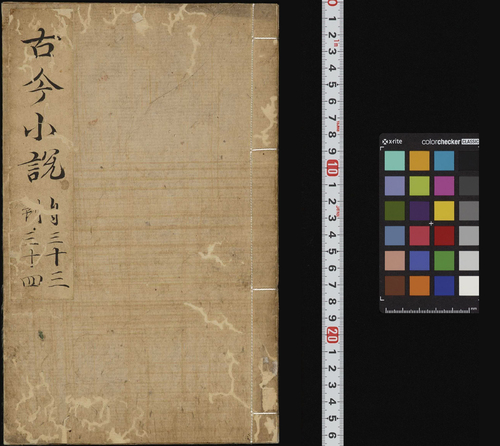 古今小說
自三十三
到三十四
0 1 2 3 4 5 6 7 8 9 10 1 2 3 4 5 6 7 8 9 20 1 2 3 4 5 6
x-rite colorchecker CLASSIC